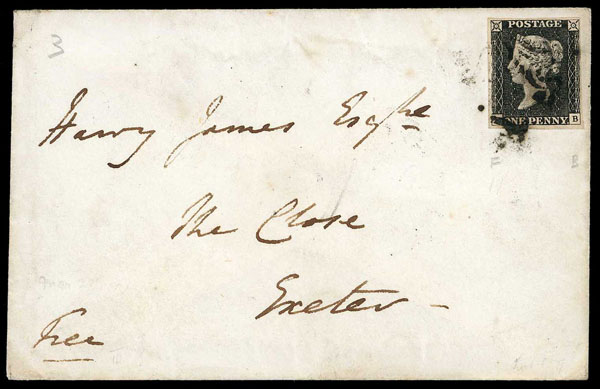 3
POSTAGE
ONE PENNY B
Henry James Esqre
The Close
Exeter
Free